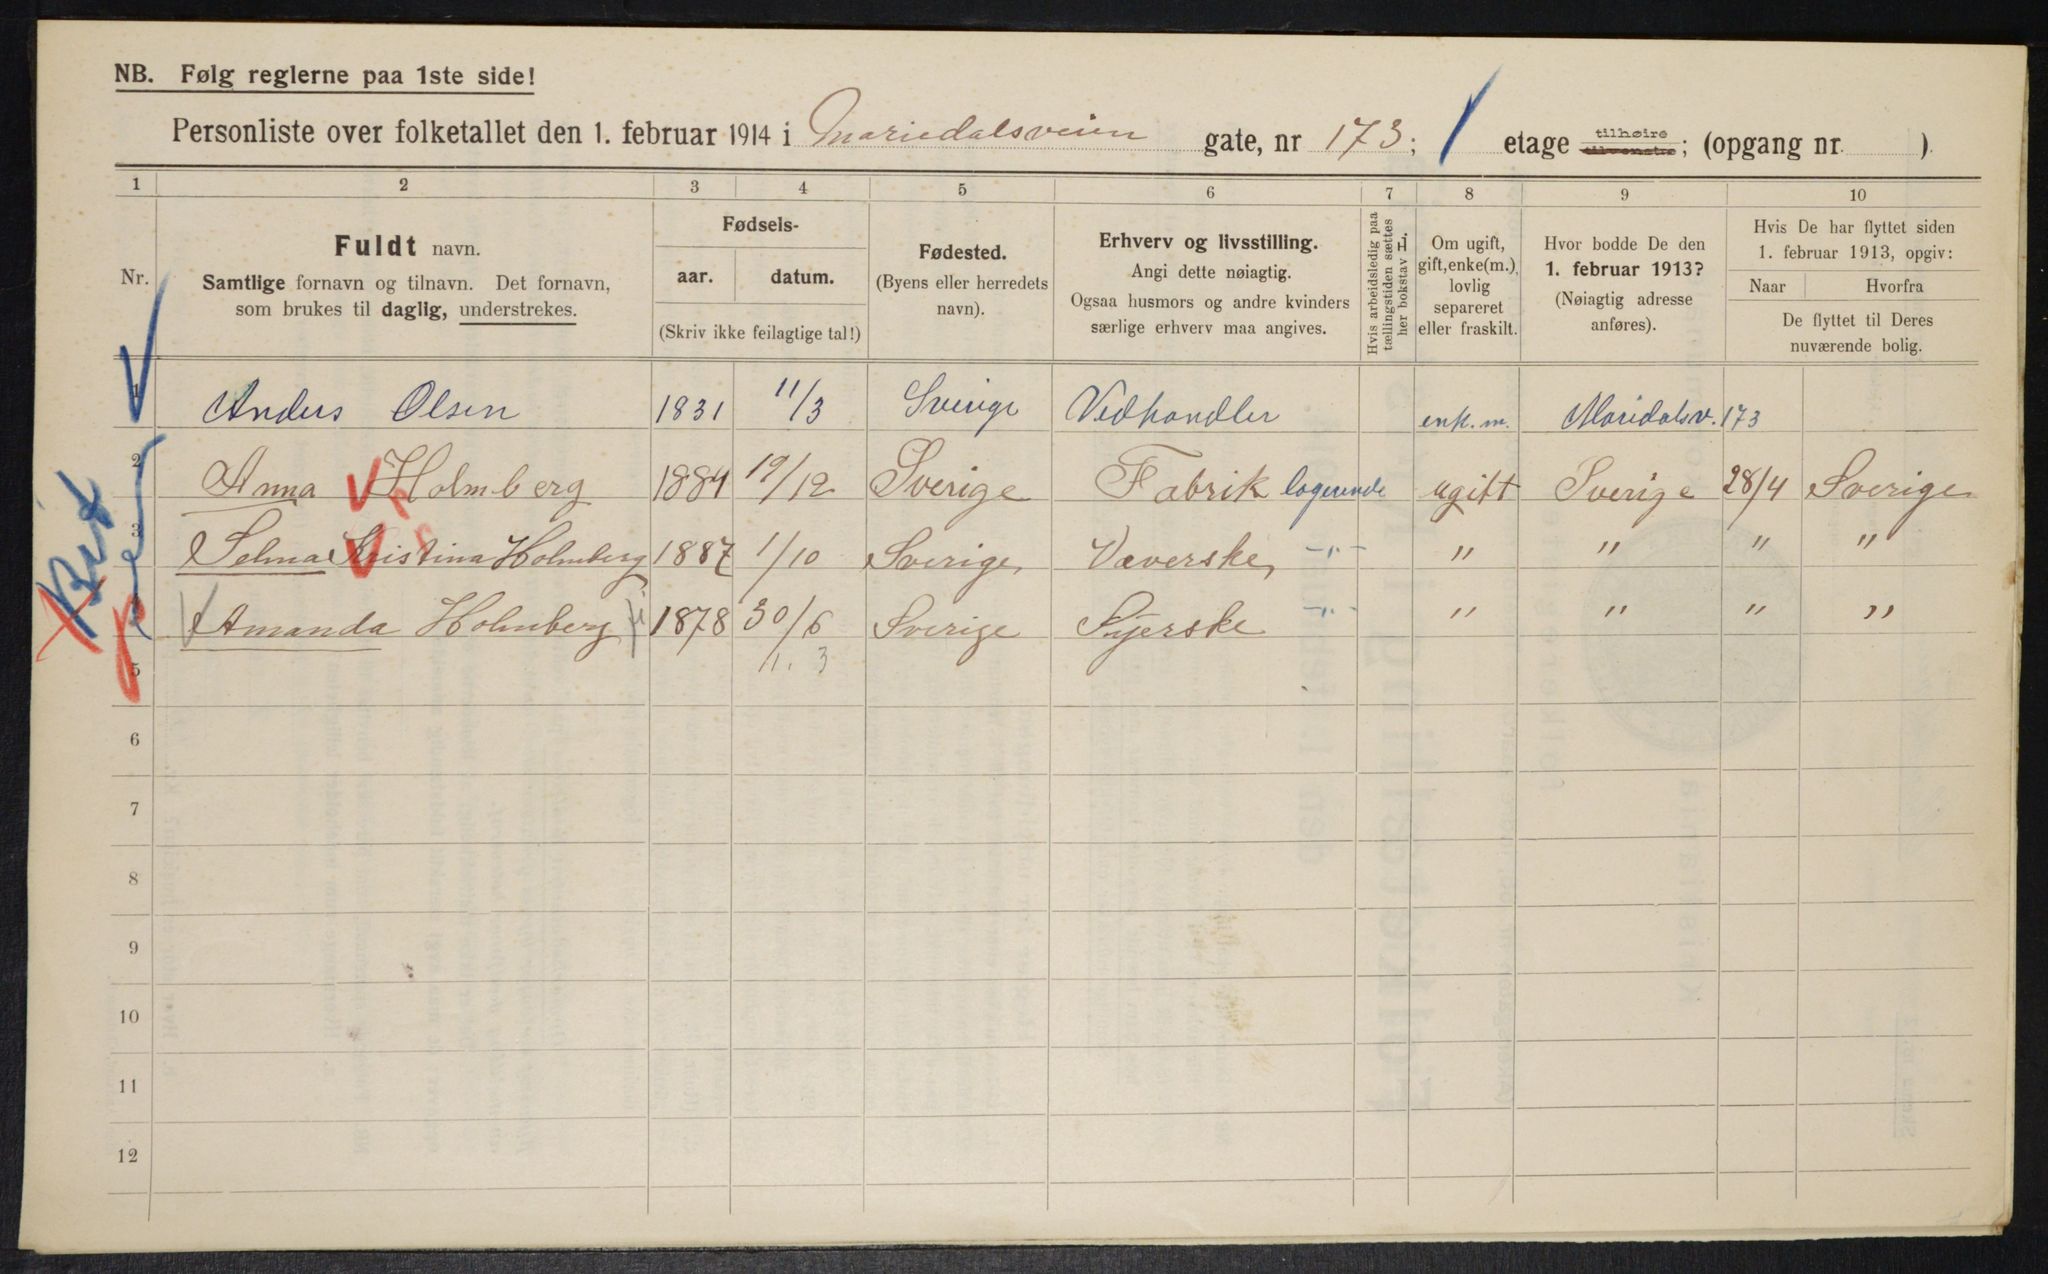 NB. Følg reglerne paa 1ste side!
Personliste over folketallet den 1. februar 1914 i Mariedalsveien gate, nr 173; / etage tilhøire tilvenstre; (opgang nr. )
1 2 3 4 5 6 7 8 9 10
Nr.
Fuldt navn.
Samtlige fornavn og tilnavn. Det fornavn,
som brukes til daglig, understrekes.
Fødsels-
aar. datum.
(Skriv ikke feilagtige tal!)
Fødested.
(Byens eller herredets
navn).
Erhverv og livsstilling.
Angi dette nøiagtig.
Ogsaa husmors og andre kvinders
særlige erhverv maa angives.
Hvis arbeidsledig paa
tællingstiden sættes
her bokstav L.
Om ugift,
gift, enke(m.),
lovlig
separeret
eller fraskilt.
Hvor bodde De den
1. februar 1913?
(Nøiagtig adresse
anføres).
Hvis De har flyttet siden
1. februar 1913, opgiv:
Naar Hvorfra
De flyttet til Deres
nuværende bolig.
1 Anders Olsen 1831 11/3 Sverige Vedhandler enk.m. Maridalsv. 173
2 Anna Holmberg 1884 19/12 Sverige Fabrik logerende ugift Sverige 28/4 Sverige
3 Selma Kristina Holmberg 1887 1/10 Sverige Væverske -"- " " " "
4 Amanda Holmberg 1878 30/6 Sverige Syerske -"- " " " "
5 1. 3
6
7
8
9
10
11
12